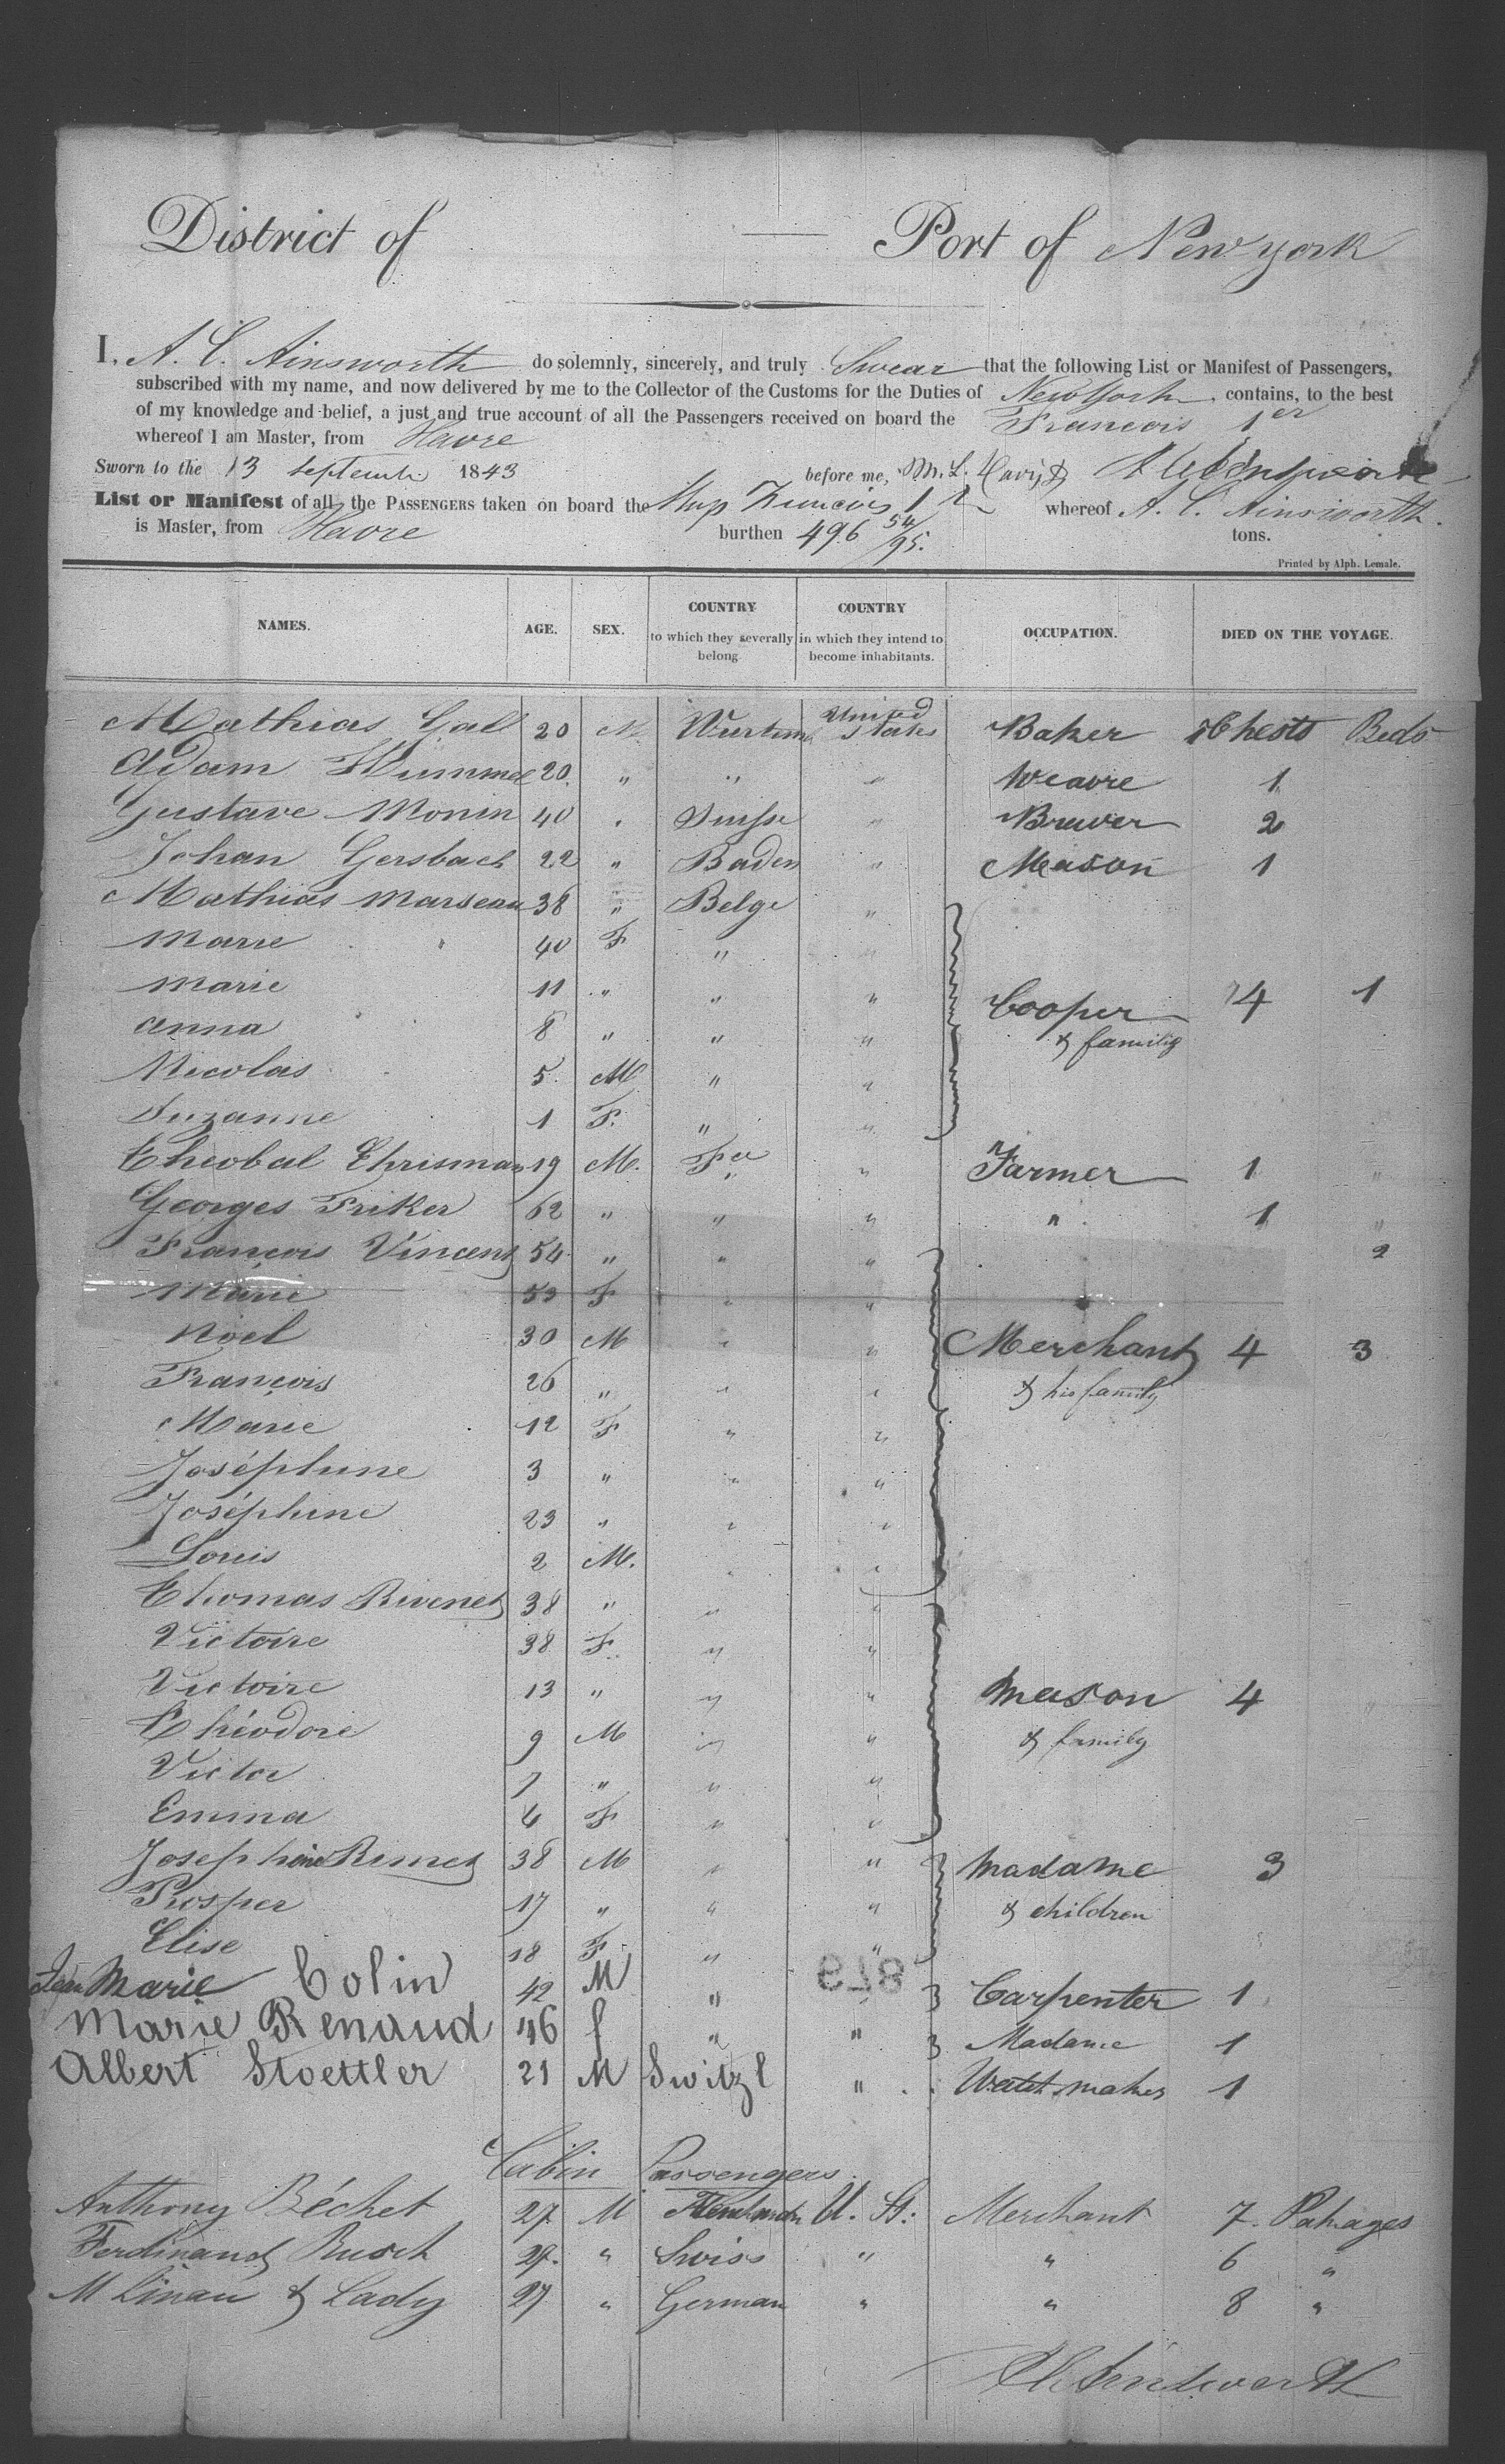 District of — Port of New york
I, A. C. Ainsworth do solemnly, sincerely, and truly Swear that the following List or Manifest of Passengers,
subscribed with my name, and now delivered by me to the Collector of the Customs for the Duties of New York, contains, to the best
of my knowledge and belief, a just and true account of all the Passengers received on board the Francois 1er
whereof I am Master, from Havre
Sworn to the 13 Septembr 1843 before me, M. L.
List or Manifest of all the PASSENGERS taken on board the Ship Francois 1r whereof A. C. Ainsworth.
is Master, from Havre burthen 496 54/95. tons.
Printed by Alph. Lemale.
NAMES. AGE. SEX. COUNTRY to which they severally belong. COUNTRY in which they intend to become inhabitants. OCCUPATION. DIED ON THE VOYAGE.
Mathias Gall 20 M. Wurtem United States Baker Chests Beds
Adam Hummel 20 " " " Weavre 1
Gustave Monin 40 " Suisse " Brewer 2
Johan Gersbach 22 " Baden " Mason 1
Mathias Marseau 38 " Belge "
Marie 40 F " "
Marie 11 " " " Cooper 4 1
Anna 8 " " " & family
Nicolas 5. M " "
Suzanne 1 F. " "
Theobal Ehrisman 19 M. Fce " Farmer 1 "
Georges Friker 62 " " " " 1 "
François Vincent 54 " " " 2
Marie 53 F " "
Noel 30 M " " Merchant 4 3
François 26 " " " & his family
Marie 12 F " "
Joséphine 3 " " "
Joséphine 23 " " "
Louis 2 M. " "
Thomas Rivenet 38 " " "
Victoire 38 F. " "
Victoire 13 " " " Mason 4 "
Théodore 9 M " " & family
Victor 7 " " "
Emma 4 F " "
Josephine Rimet 38 M " " Madame 3
Prosper 17 " " " & children
Elise 18 F. " "
879
Jean Marie Colin 42 M " " Carpenter 1
Marie Renaud 46 f " " Madame 1
Albert Stoettler 21 M Switzl " Watch maker 1
Cabin Passengers
Anthony Béchet 27 M U. St: Merchant 7 Pakages
Ferdinand Rusch 27. " Swiss " " 6 "
M Linau & Lady 27 " German " " 8 "
A C Ainsworth